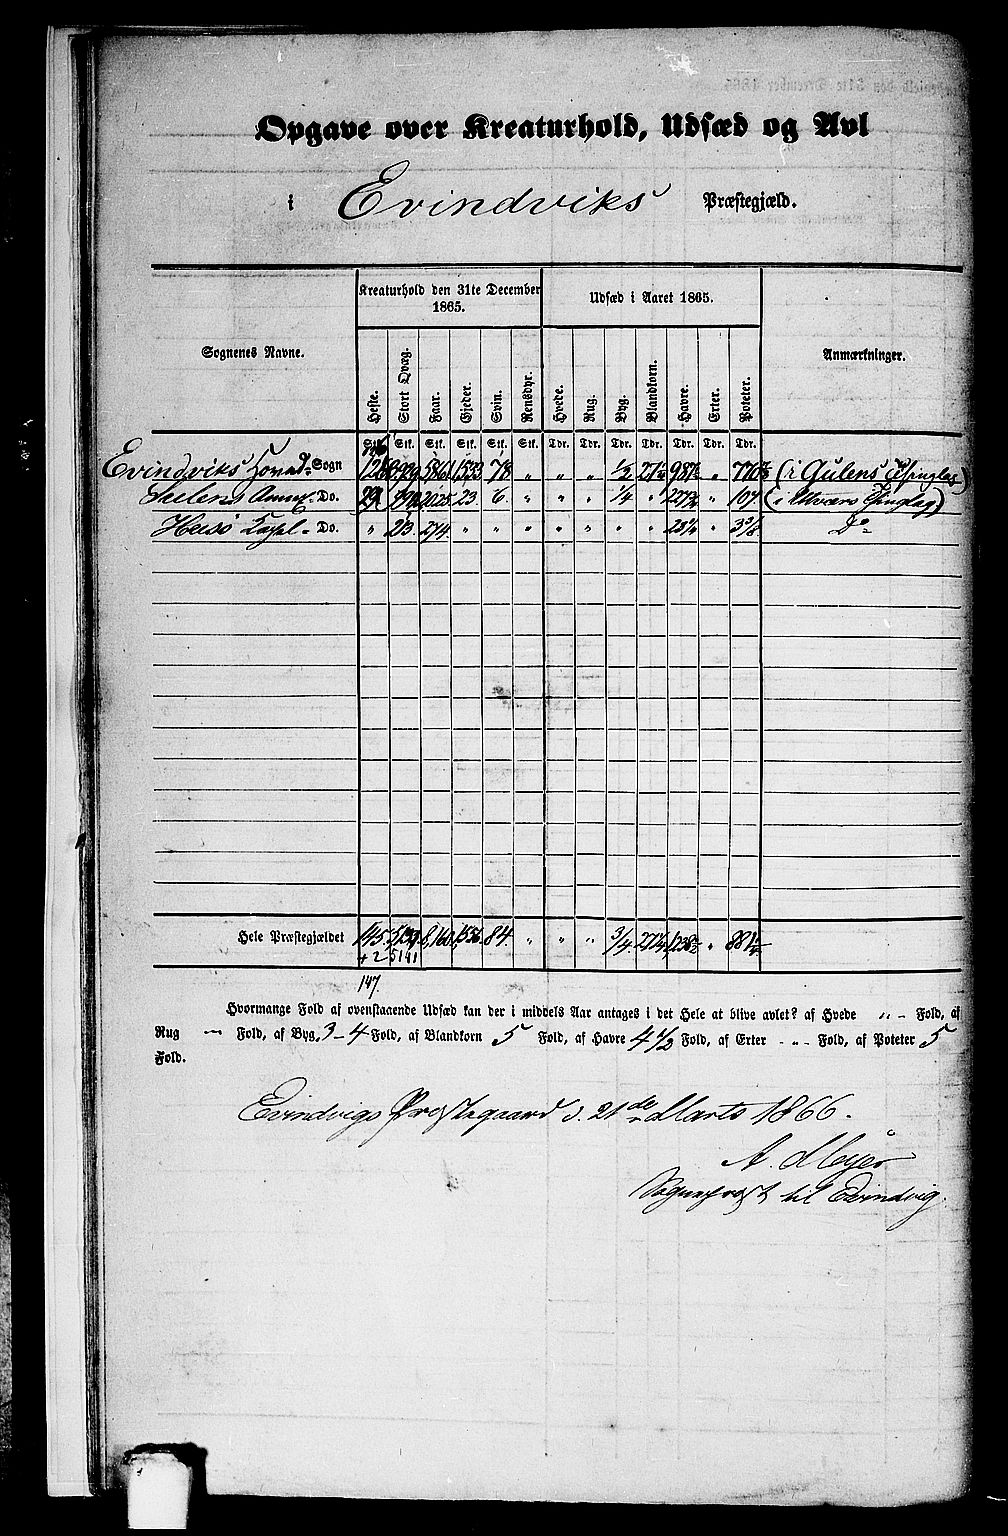 Opgave over Kreaturhold, Udsæd og Avl
i Evindviks Præstegjæld.
Kreaturhold den 31te December 1865.
Udsæd i Aaret 1865.
Sognenes Navne.
Heste. Stort Qvæg. Faar. Gjeder. Svin. Rensdyr. Hvede. Rug. Byg. Blandkorn. Havre. Erter. Poteter.
Anmærkninger.
Stk. Stk. Stk. Stk. Stk. Stk. Tdr. Tdr. Tdr. Tdr. Tdr. Tdr. Tdr.
Evindviks Hoved-Sogn 5861 1,533 78 „ „ „ 1/2 „ (i Gulens Thinglag)
Annex-Do. 2025 23. 6. „ „ „ 1/4 „ „ 107 (i Utvær Thinglag)
Husø Kapl-Do. „ 213. 274. „ „ „ „ „ „ „ 23 1/4 „ 3 3/8 Do
Hele Præstegjældet 145. 5,139 8,160. 1,556. 84. „ „ „ 3/4 27 1/2 1,238 1/2 „ 881 1/4
+2 5141
147.
Hvormange Fold af ovenstaaende Udsæd kan der i middels Aar antages i det Hele at blive avlet? af Hvede „ - Fold, af
Rug — Fold, af Byg 3-4 Fold, af Blandkorn 5 Fold, af Havre 4 1/2 Fold, af Erter - „ - Fold, af Poteter 5
Fold.
Evindvigs Præstegaard d. 21de Marts 1866.
A. Meyer
Sogneprest til Evindvig.